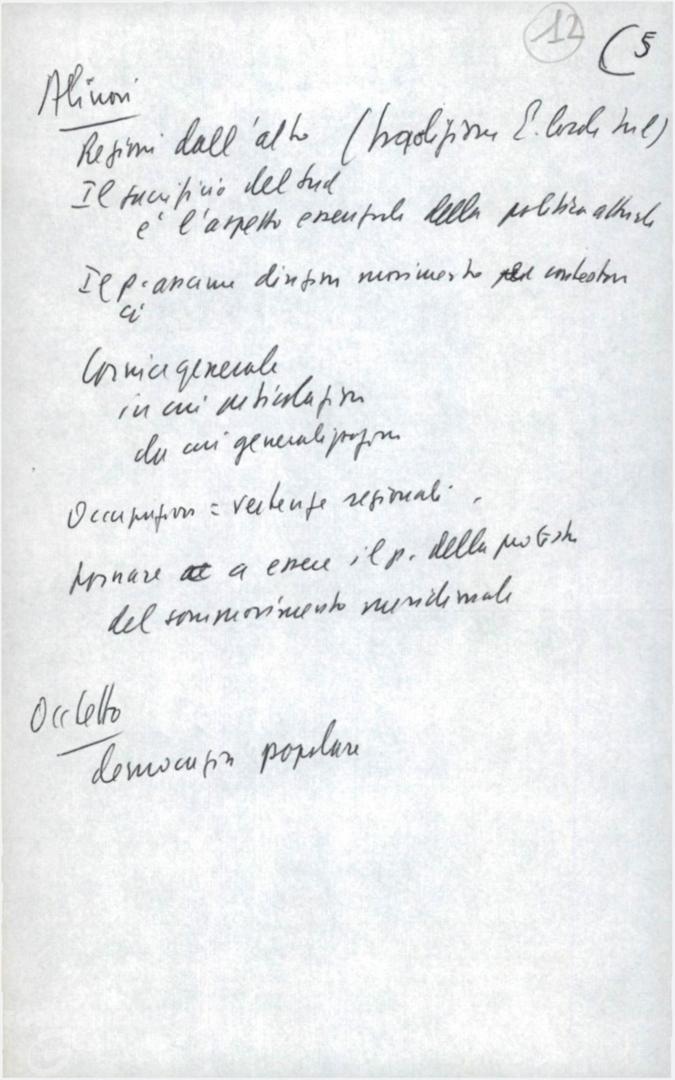 12 (5
Alinovi
Regioni dall'alto (tradizione locale sul)
Il sacrificio del Sud
e' l'aspetto essenziale della politica attuale
Il p. assume dimensioni movimento
ci
Cornice generale
in cui articolazioni
da cui generalizzazioni
Occupazione = vertenze regionali.
tornare a essere il p. della protesta
del sommovimento meridionale
Occhetto
democrazia popolare